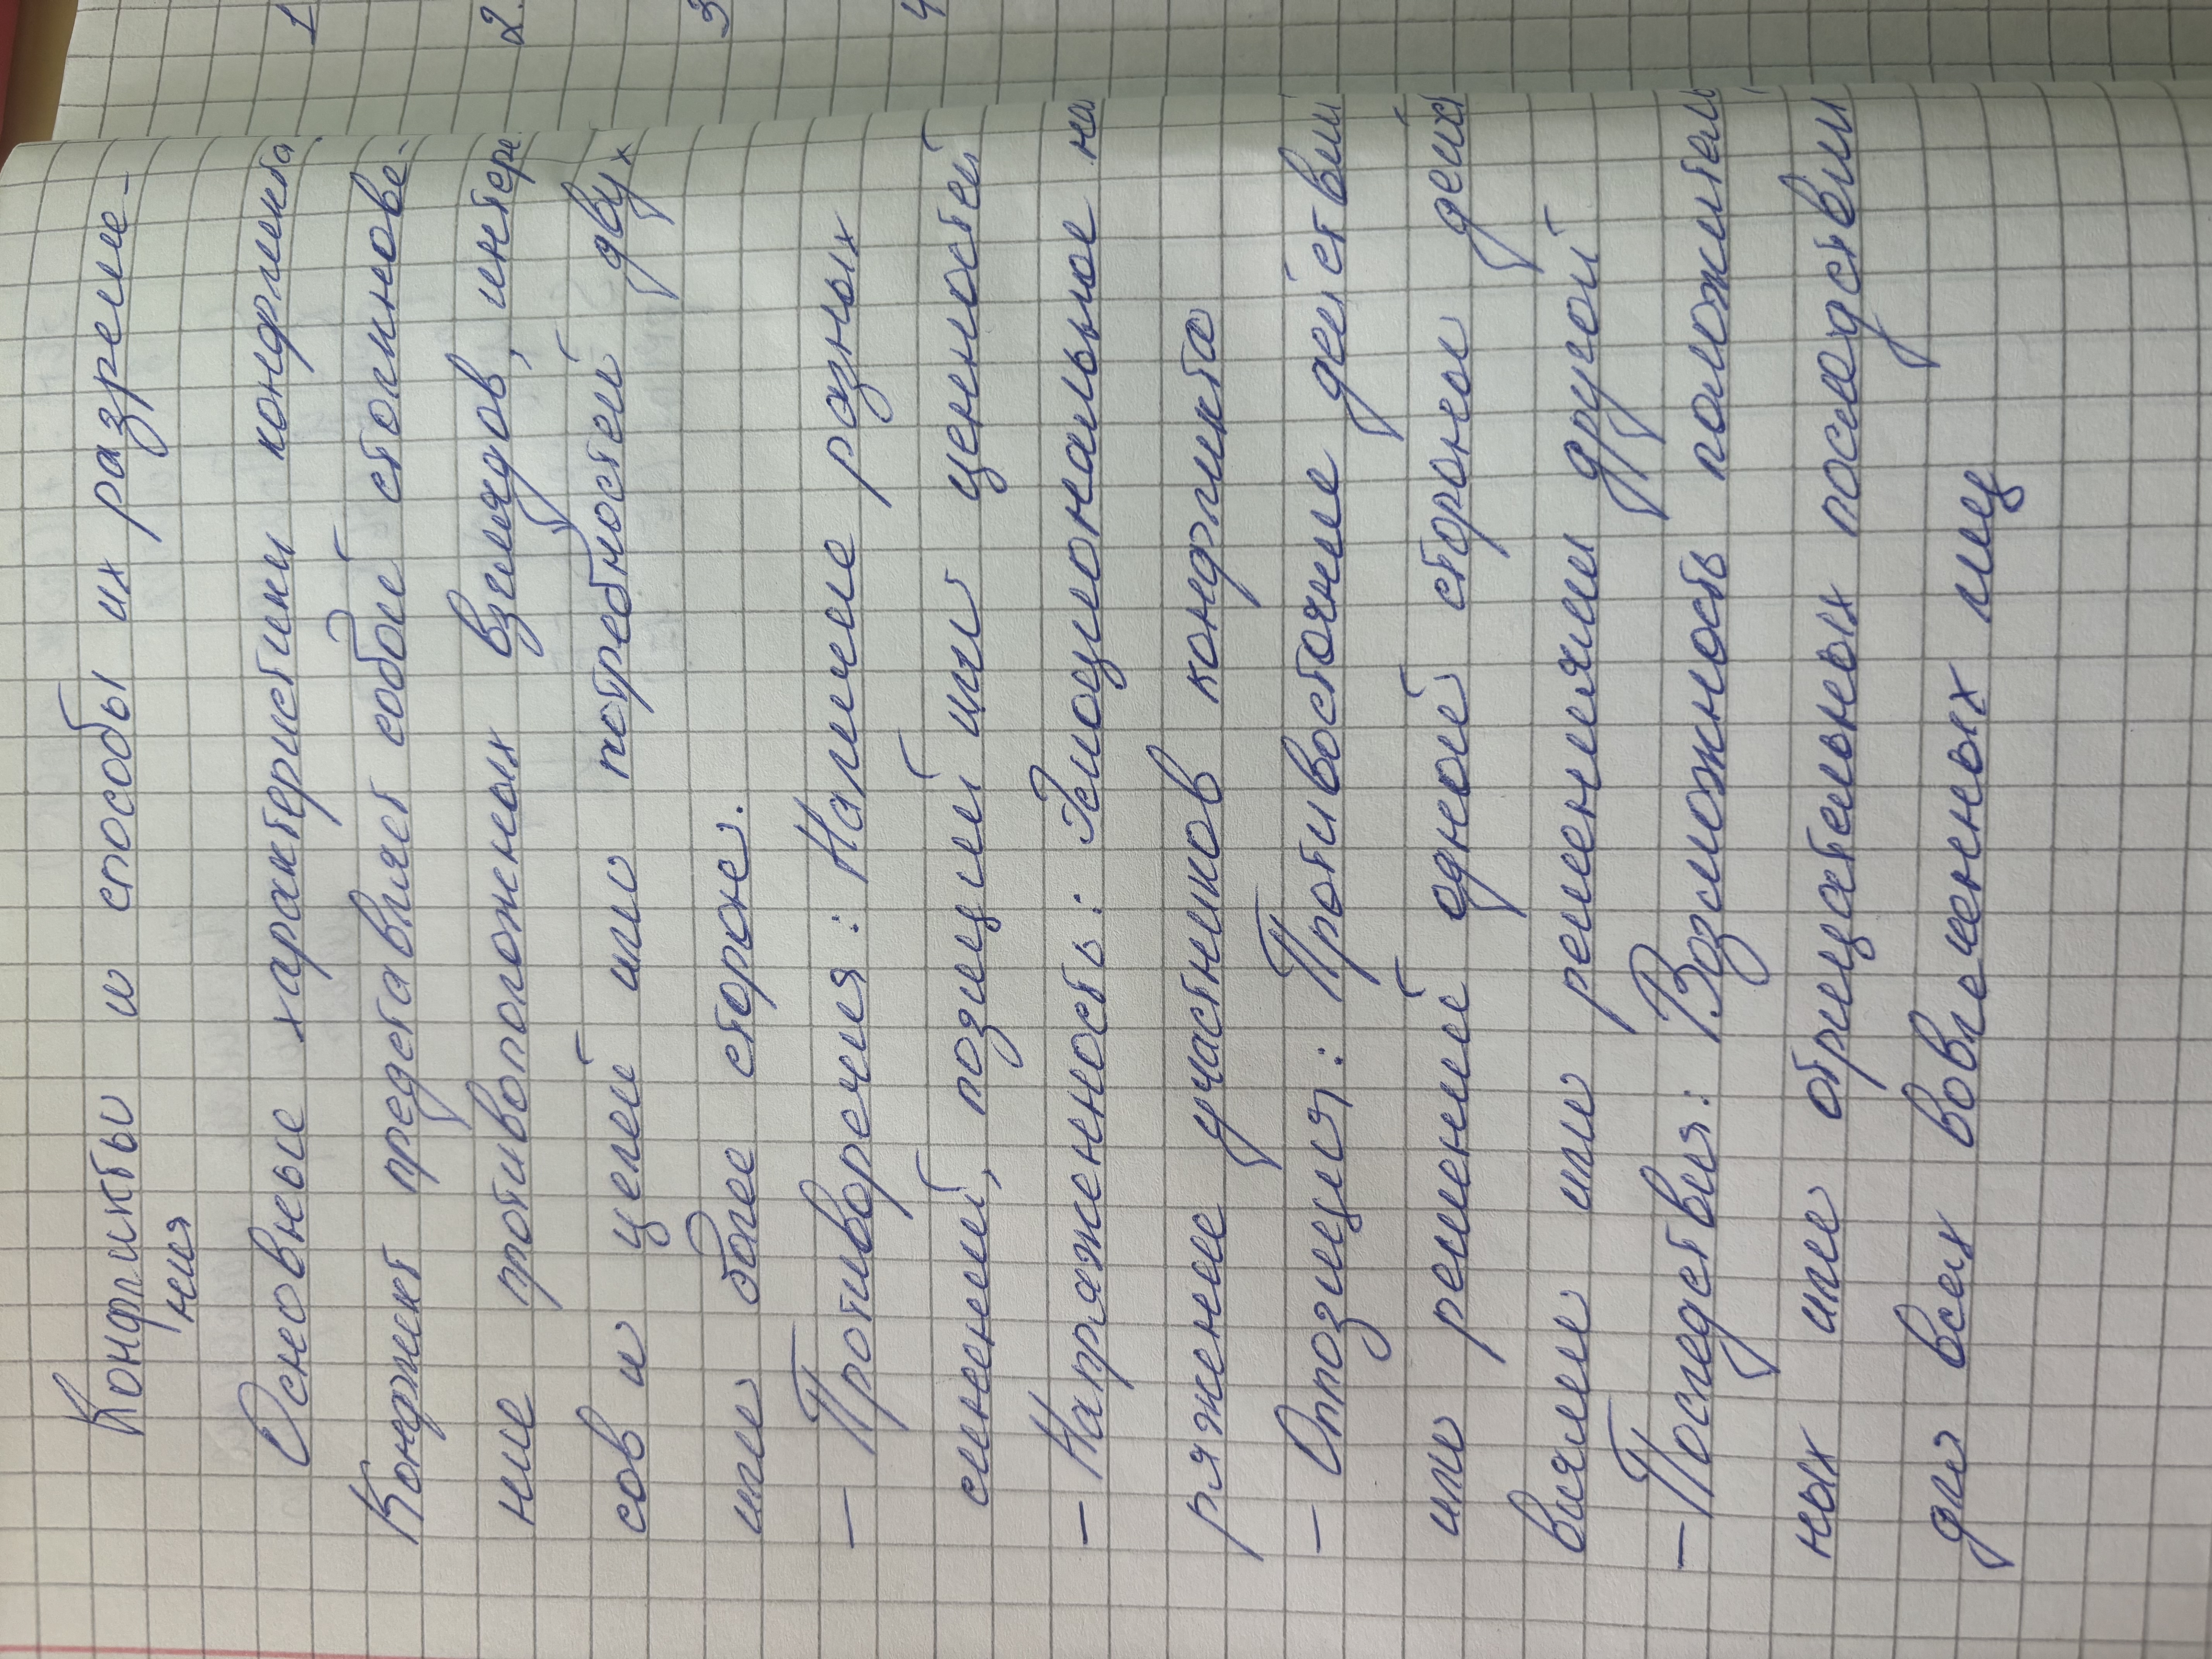 Конфликты и способы их разреше-
ния
Основные характеристики конфликта
Конфликт представляет собой столкнове-
ние противоположных взглядов, интере
сов и целей или потребностей двух
или более сторон.
- Противоречия: Наличие разных
мнений, позиций или ценностей
- Напряженность: Эмоциональное на
ряжение участников конфликта
- Оппозиция: Противостояние действи
или решений одной стороны дейст
виями или решениями другой
- Последствия: Возможность положитель
ных или отрицательных последстви
для всех вовлеченных лиц
1
2.
3
4